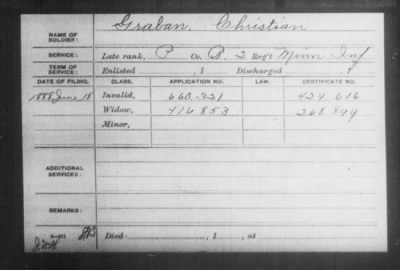 NAME OF SOLDIER: Graban, Christian
SERVICE: Late rank, P Co. B, 2 Reg't Minn Inf
TERM OF SERVICE: Enlisted , 1 Discharged , 1
DATE OF FILING. CLASS. APPLICATION NO. LAW. CERTIFICATE NO.
1888 June 18 Invalid, 660.321 424.616
Widow, 416.853 268.899
Minor,
ADDITIONAL SERVICES:
REMARKS:
Died , 1 , at